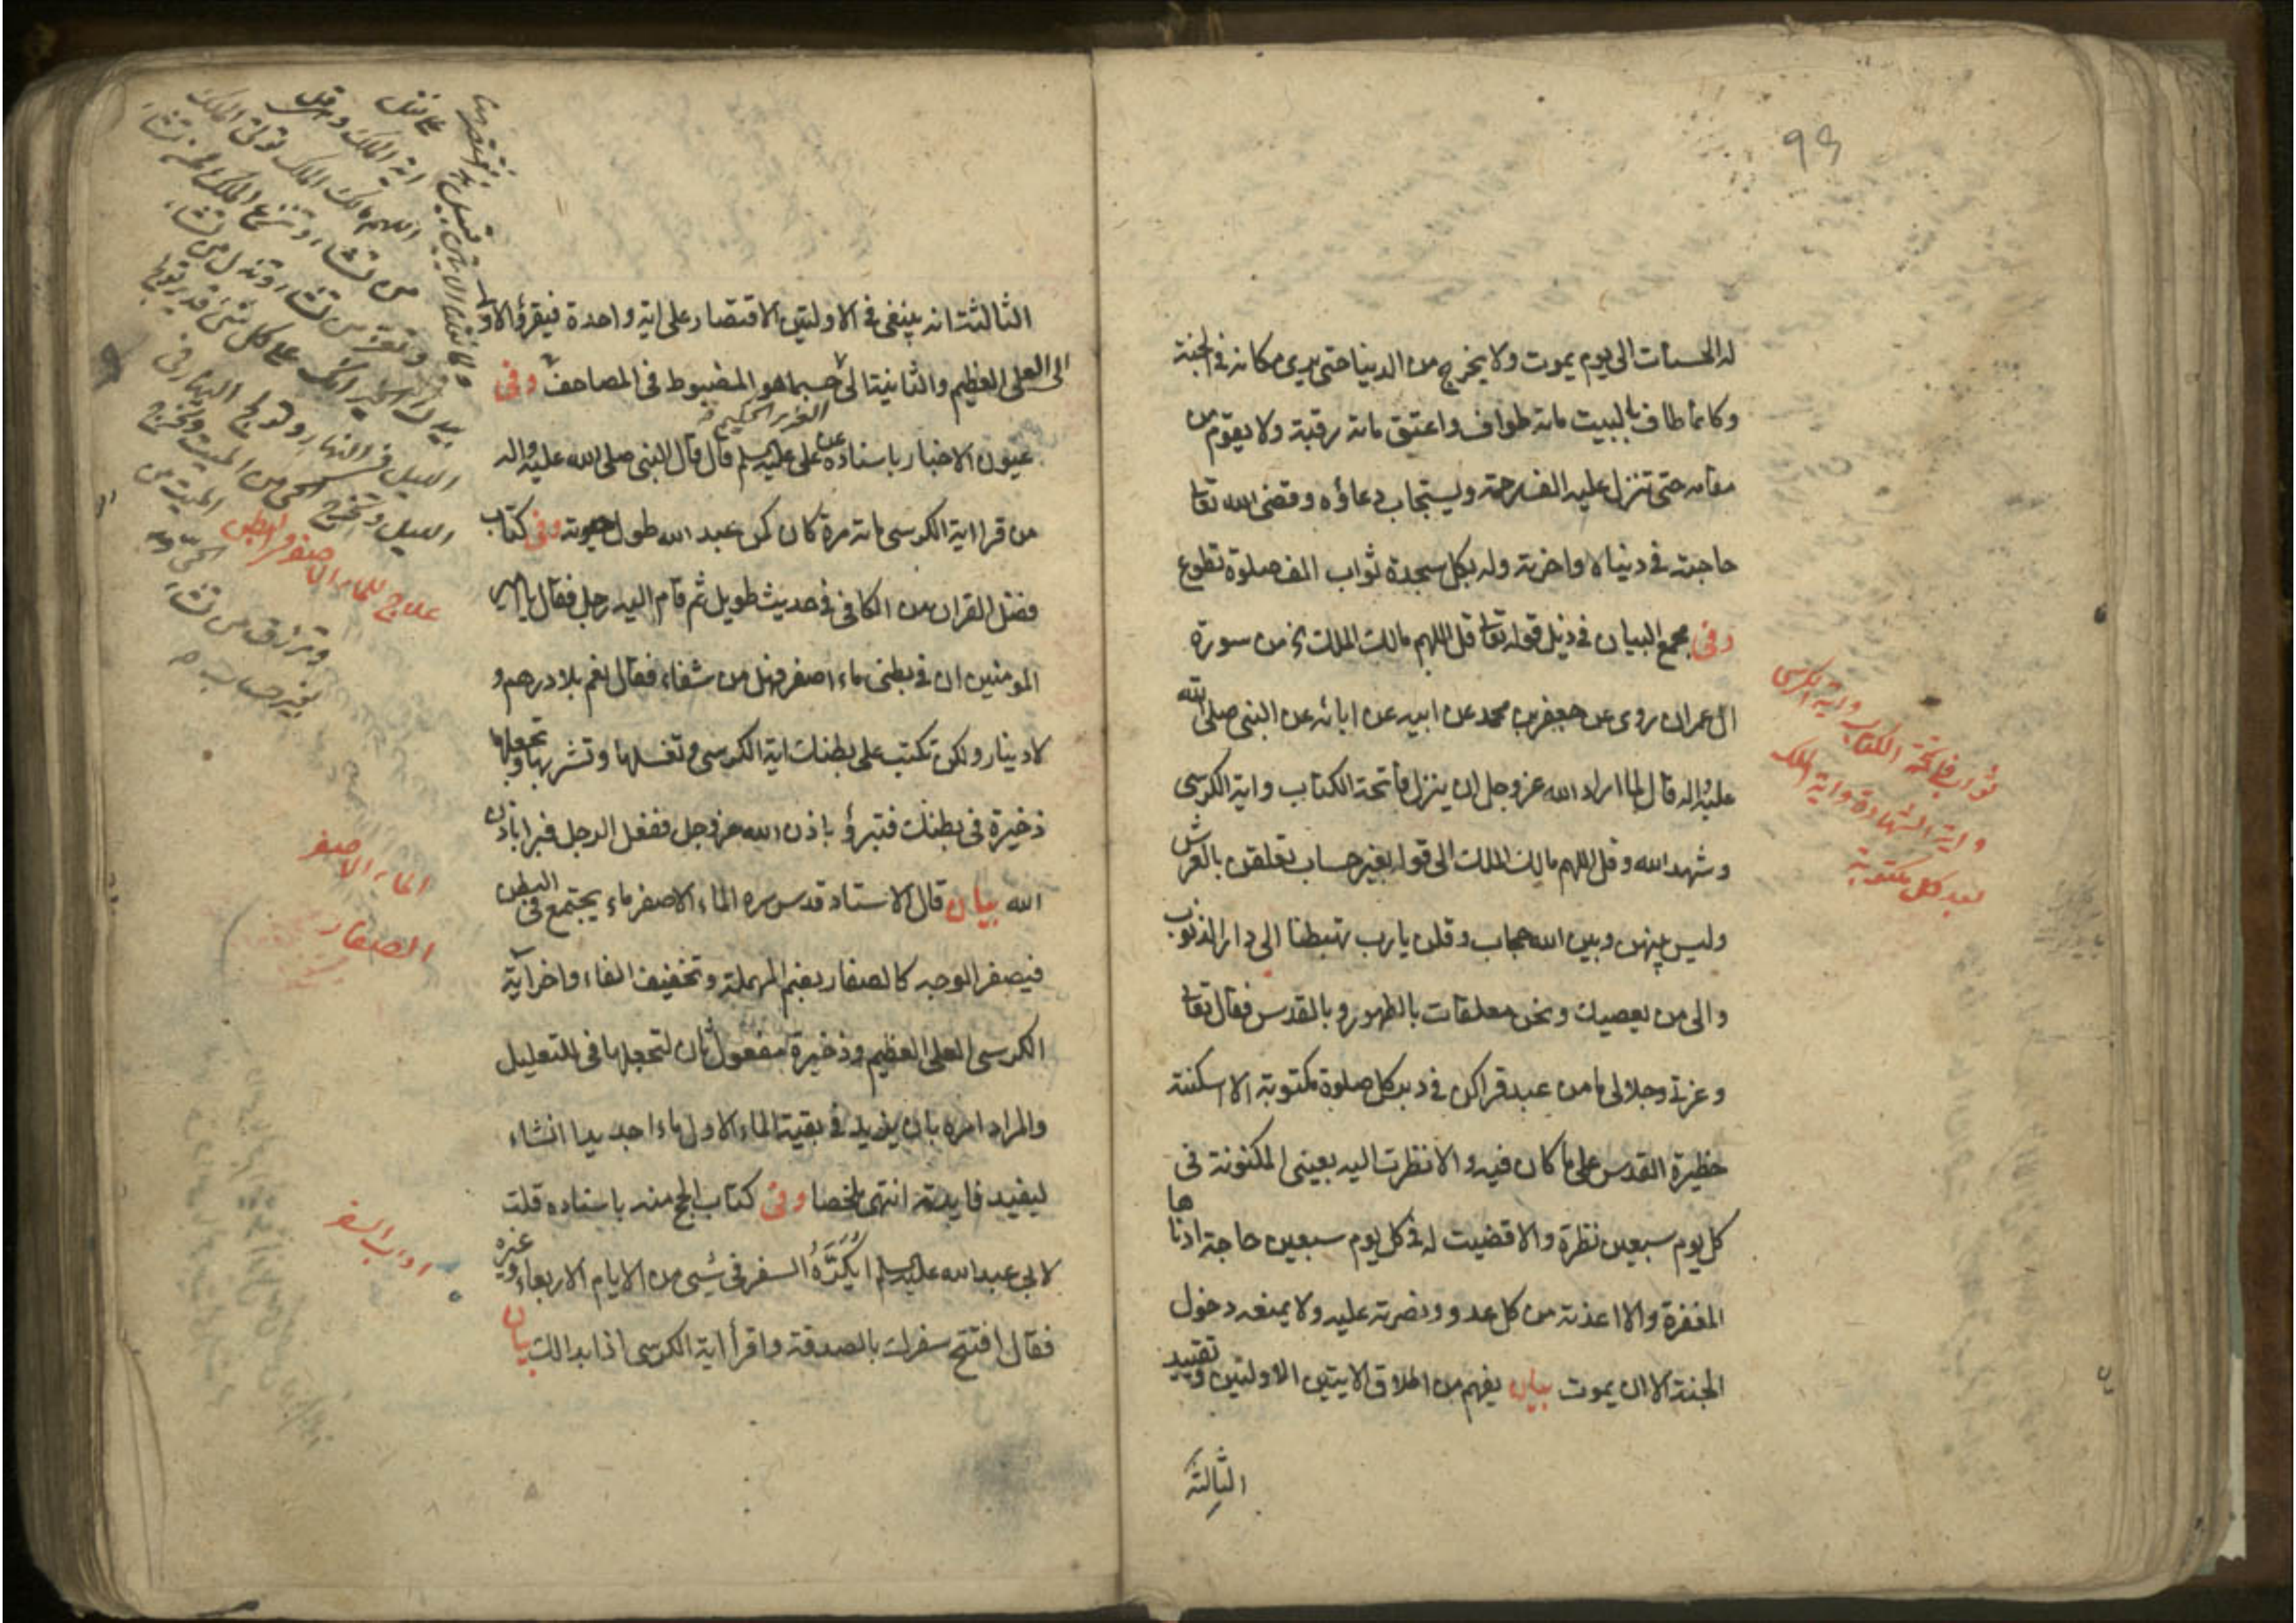 99
له الحسنات الى يوم يموت ولا يخرج من الدنيا حتى يرى مكانه في الجنة
وكانما طاف بالبيت مائة طواف واعتق مائة رقبة ولا يقوم من
مقامه حتى تنزل عليه الف رحمة ويستجاب دعاؤه وقضى الله تعا
حاجته في دنياه واخرته وله بكل سجدة ثواب الف صلوة تطوع
وفي مجمع البيان في ذيل قوله تعا قل اللهم مالك الملك من سورة
ال عمران روى عن جعفر بن محمد عن ابيه عن ابائه عن النبي صلى الله
عليه واله قال لما اراد الله عز وجل ان ينزل فاتحة الكتاب واية الكرسى
وشهد الله وقل اللهم مالك الملك الى قوله بغير حساب تعلقن بالعرش
وليس بينهن وبين الله حجاب وقلن يا رب تهبطنا الى دار الذنوب
والى من يعصيك ونحن معلقات بالطهور وبالقدس فقال تعا
وعزتي وجلالي ما من عبد قراكن في دبر كل صلوة مكتوبة الا اسكنته
حظيرة القدس على ما كان فيه والا نظرت اليه بعيني المكنونة في
كل يوم سبعين نظرة والا قضيت له في كل يوم سبعين حاجة ادناها
المغفرة والا اعذته من كل عدو ونصرته عليه ولا يمنعه دخول
الجنة الا ان يموت بيان يفهم من اطلاق الايتين الاولتين وتقييد
الثالثة
ثواب فاتحة الكتاب واية الكرسى
واية الشهادة واية الملك
بعد كل مكتوبة
الثالثة انه ينبغى في الاولتين الاقتصار على اية واحدة فيقرؤ الاولى
الى العلى العظيم والثانية الى حسبما هو المضبوط في المصاحف وفي
العزيز الحكيم
عيون الاخبار باسناده عن على عليه السلم قال قال النبي صلى الله عليه واله
من قرا اية الكرسى مائة مرة كان كمن عبد الله طول حيوته وفي كتاب
فضل القران من الكافى في حديث طويل ثم قام اليه رجل فقال يا امير
المومنين ان في بطنى ماء اصفر فهل من شفاء فقال نعم بلا درهم و
لا دينار ولكن تكتب على بطنك اية الكرسى وتغسلها وتشربها وتجعلها
ذخيرة في بطنك فتبرؤ باذن الله عز وجل ففعل الرجل فبرا باذن
الله بيان قال الاستاد قدس سره الماء الاصفر ماء يجتمع في البطن
فيصفر الوجه كالصفار بضم المهملة وتخفيف الفاء واخر آية
الكرسى العلى العظيم وذخيرة مفعول ثان لتجعلها في التعليل
والمراد امره بان يزيد في بقية الماء الاول ماء جديدا انشاء
ليفيد فايدته انتهى ملخصا وفي كتاب الحج منه باسناده قلت
لابى عبد الله عليه السلم ايكره السفر في شيى من الايام الاربعاء وغيره
فقال افتتح سفرك بالصدقة واقرأ اية الكرسى اذا بدا لك بيان
اية الملك
اللهم مالك الملك توتى الملك
من تشاء وتنزع الملك ممن تشاء
وتعز من تشاء وتذل من تشاء
بيدك الخير انك على كل شئ قدير تولج
الليل في النهار وتولج النهار في
الليل وتخرج الحى من الميت وتخرج
الميت من
الحى
وترزق من تشاء
بغير حساب
علاج للماء الاصفر في البطن
الماء الاصفر
الصفار
اداب السفر